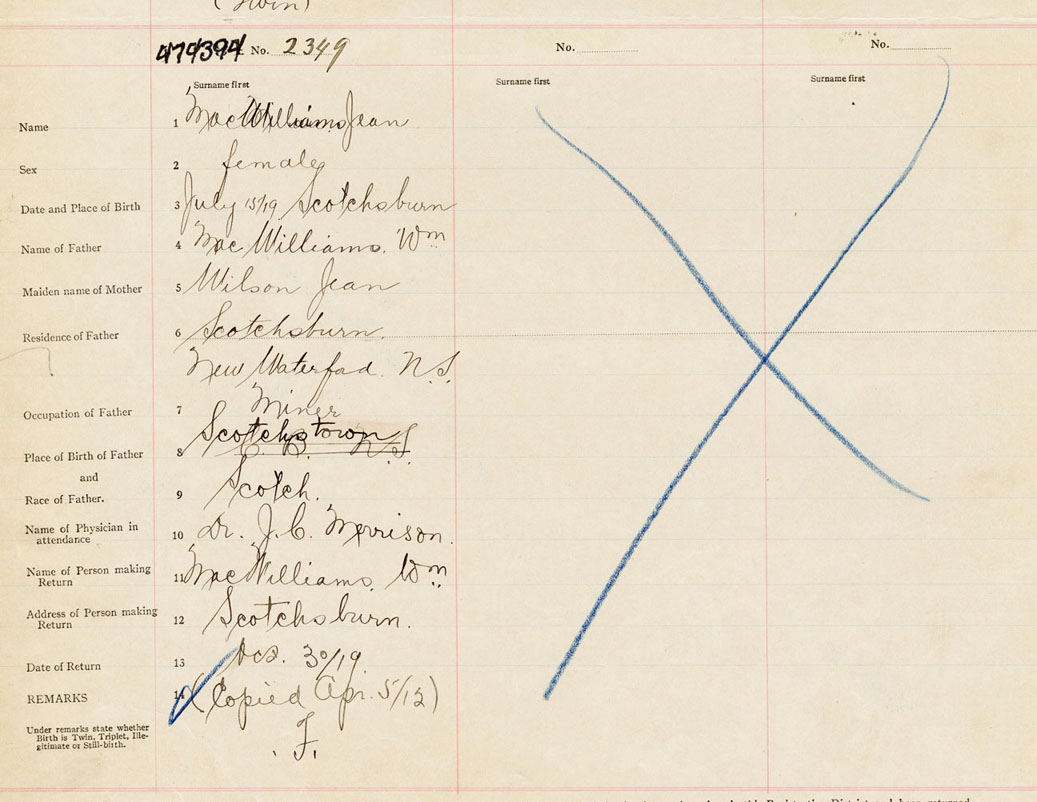 (Twin)
No. 2349 No. No.
Surname first Surname first Surname first
Name 1 MacWilliams Jean
Sex 2 female
Date and Place of Birth 3 July 15/19 Scotchsburn
Name of Father 4 MacWilliams. Wm
Maiden name of Mother 5 Wilson Jean
Residence of Father 6 Scotchsburn.
New Waterfad. N.S.
Occupation of Father 7 Miner
Scotchstown
Place of Birth of Father 8 C. B. N S
and
Race of Father. 9 Scotch.
Name of Physician in
attendance 10 Dr. J. C. Morrison.
Name of Person making
Return 11 MacWilliams, Wm
Address of Person making
Return 12 Scotchsburn.
Date of Return 13 30/19
REMARKS 14 (Copied Apr. 5/12)
Under remarks state whether
Birth is Twin, Triplet, Ille-
gitimate or Still-birth.
F.